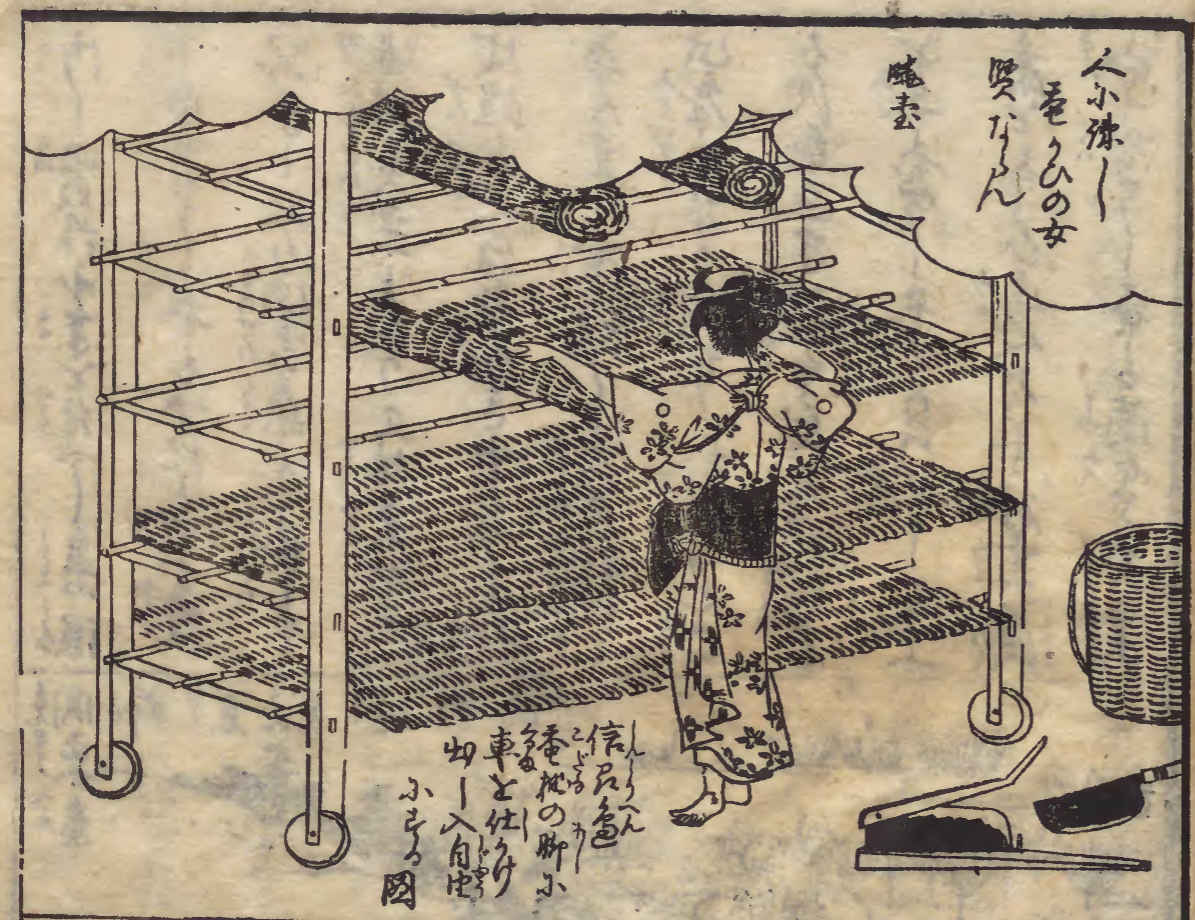 人に疎し
蚕かひの女
賢ならん
暁臺
信州邊
蚕棚の脚に
車を仕かけ
出し入自由
にする圖